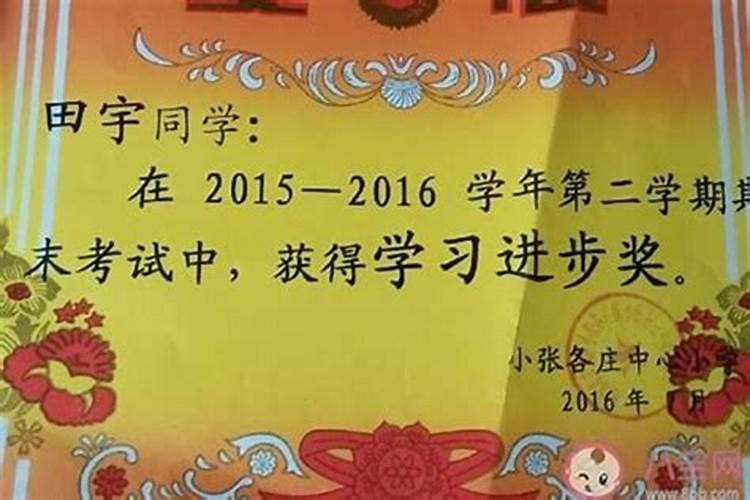 田宇同学：
在 2015—2016 学年第二学期期
末考试中，获得学习进步奖。
小张各庄中心小学
2016 年 月
八宝网